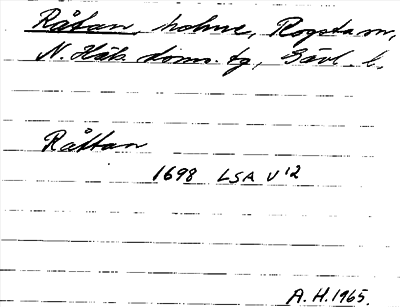 Råtan, holme, Rogsta sn,
N. Häls. doms. tg, Gävl. l.
Råttan
1698 LSA V 12
A.H. 1965.